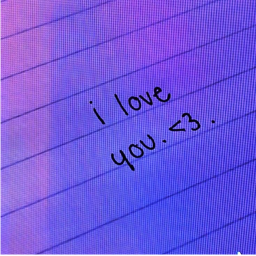 i love
you.<3.